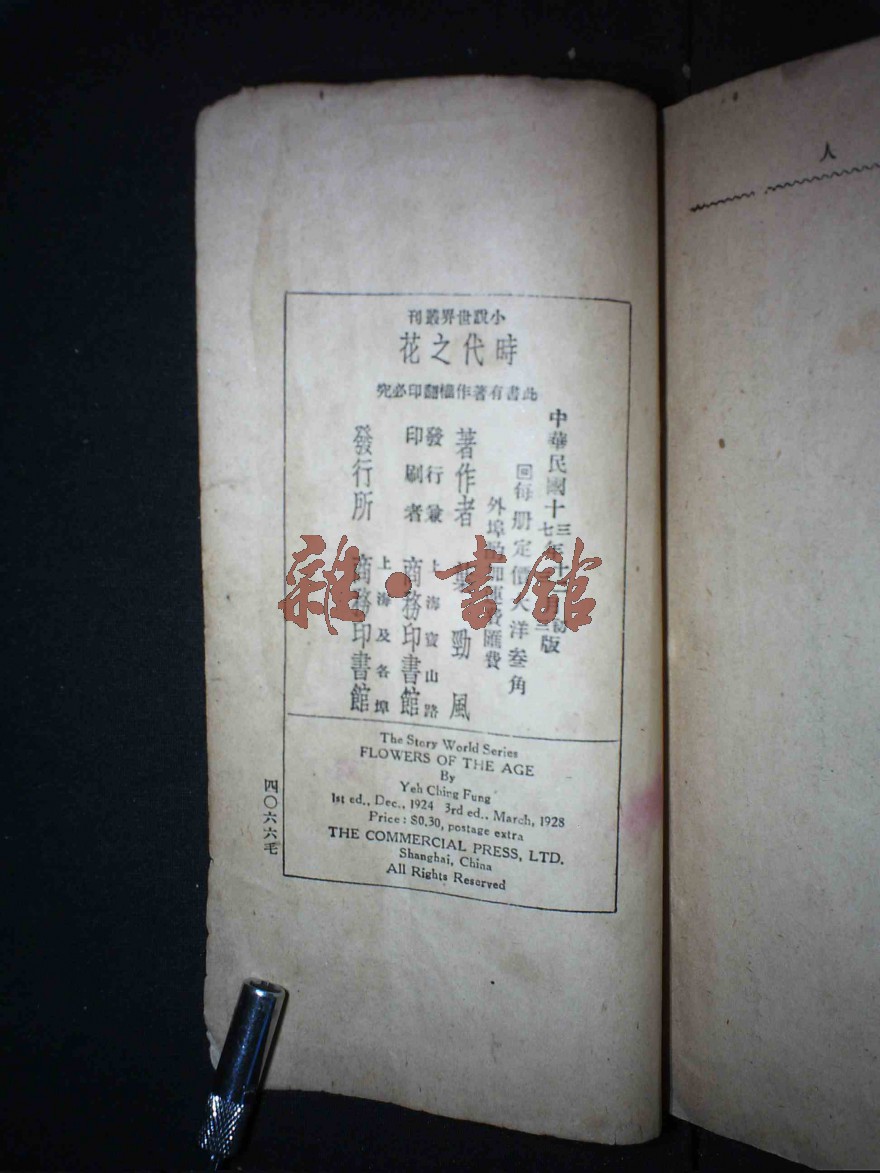 人
小說世界叢刊
時代之花
此書有著作權翻印必究
中華民國十三年十二月初版
七 三
回每册定價大洋叁角
外埠酌加運費匯費
著作者 勁風
發行兼印刷者 上海寶山路 商務印書館
發行所 上海及各埠 商務印書館
The Story World Series
FLOWERS OF THE AGE
By
Yeh Ching Fung
1st ed., Dec., 1924 3rd ed., March, 1928
Price: $0.30, postage extra
THE COMMERCIAL PRESS, LTD.
Shanghai, China
All Rights Reserved
四〇六六毛
雜·書館